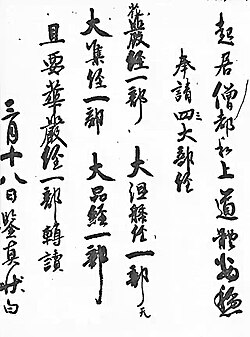 起居僧都和上道體安穩
奉請四大部經
三
花嚴經一部 大涅槃經一部
大集經一部 大品經一部
且要華嚴經一部轉讀
三月十八日鑒真狀白